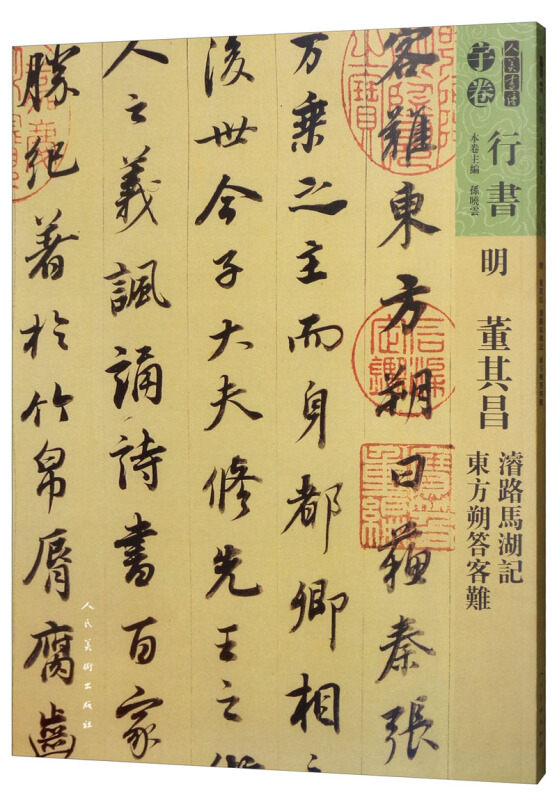 人美書譜
宇卷
行書
本卷主編 孫曉雲
明 董其昌
濬路馬湖記
東方朔答客難
客難東方朔曰蘇秦張
万乘之主而身都卿相
後世今子大夫修先王之
人之義諷誦詩書百家
勝紀著於竹帛脣腐齒
人民美術出版社